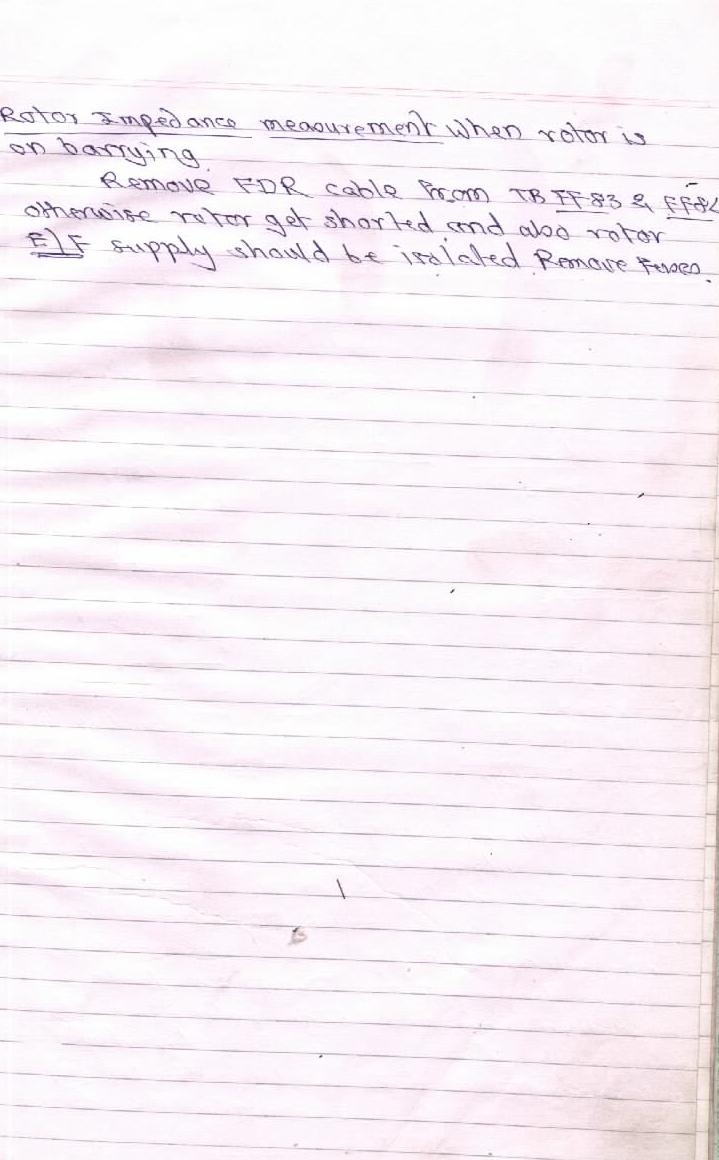 Rotor Impedance measurement when rotor is
on barrying.
Remove FDR cable from TB FF83 &
otherwise rotor get shorted and also rotor
E/F supply should be isolated. Remove Fuses.